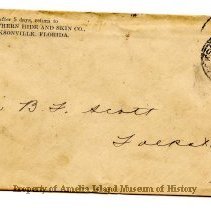 after 5 days, return to
THERN HIDE AND SKIN CO.,
KSONVILLE, FLORIDA.
B. F. Scott
Property of Amelia Island Museum of History